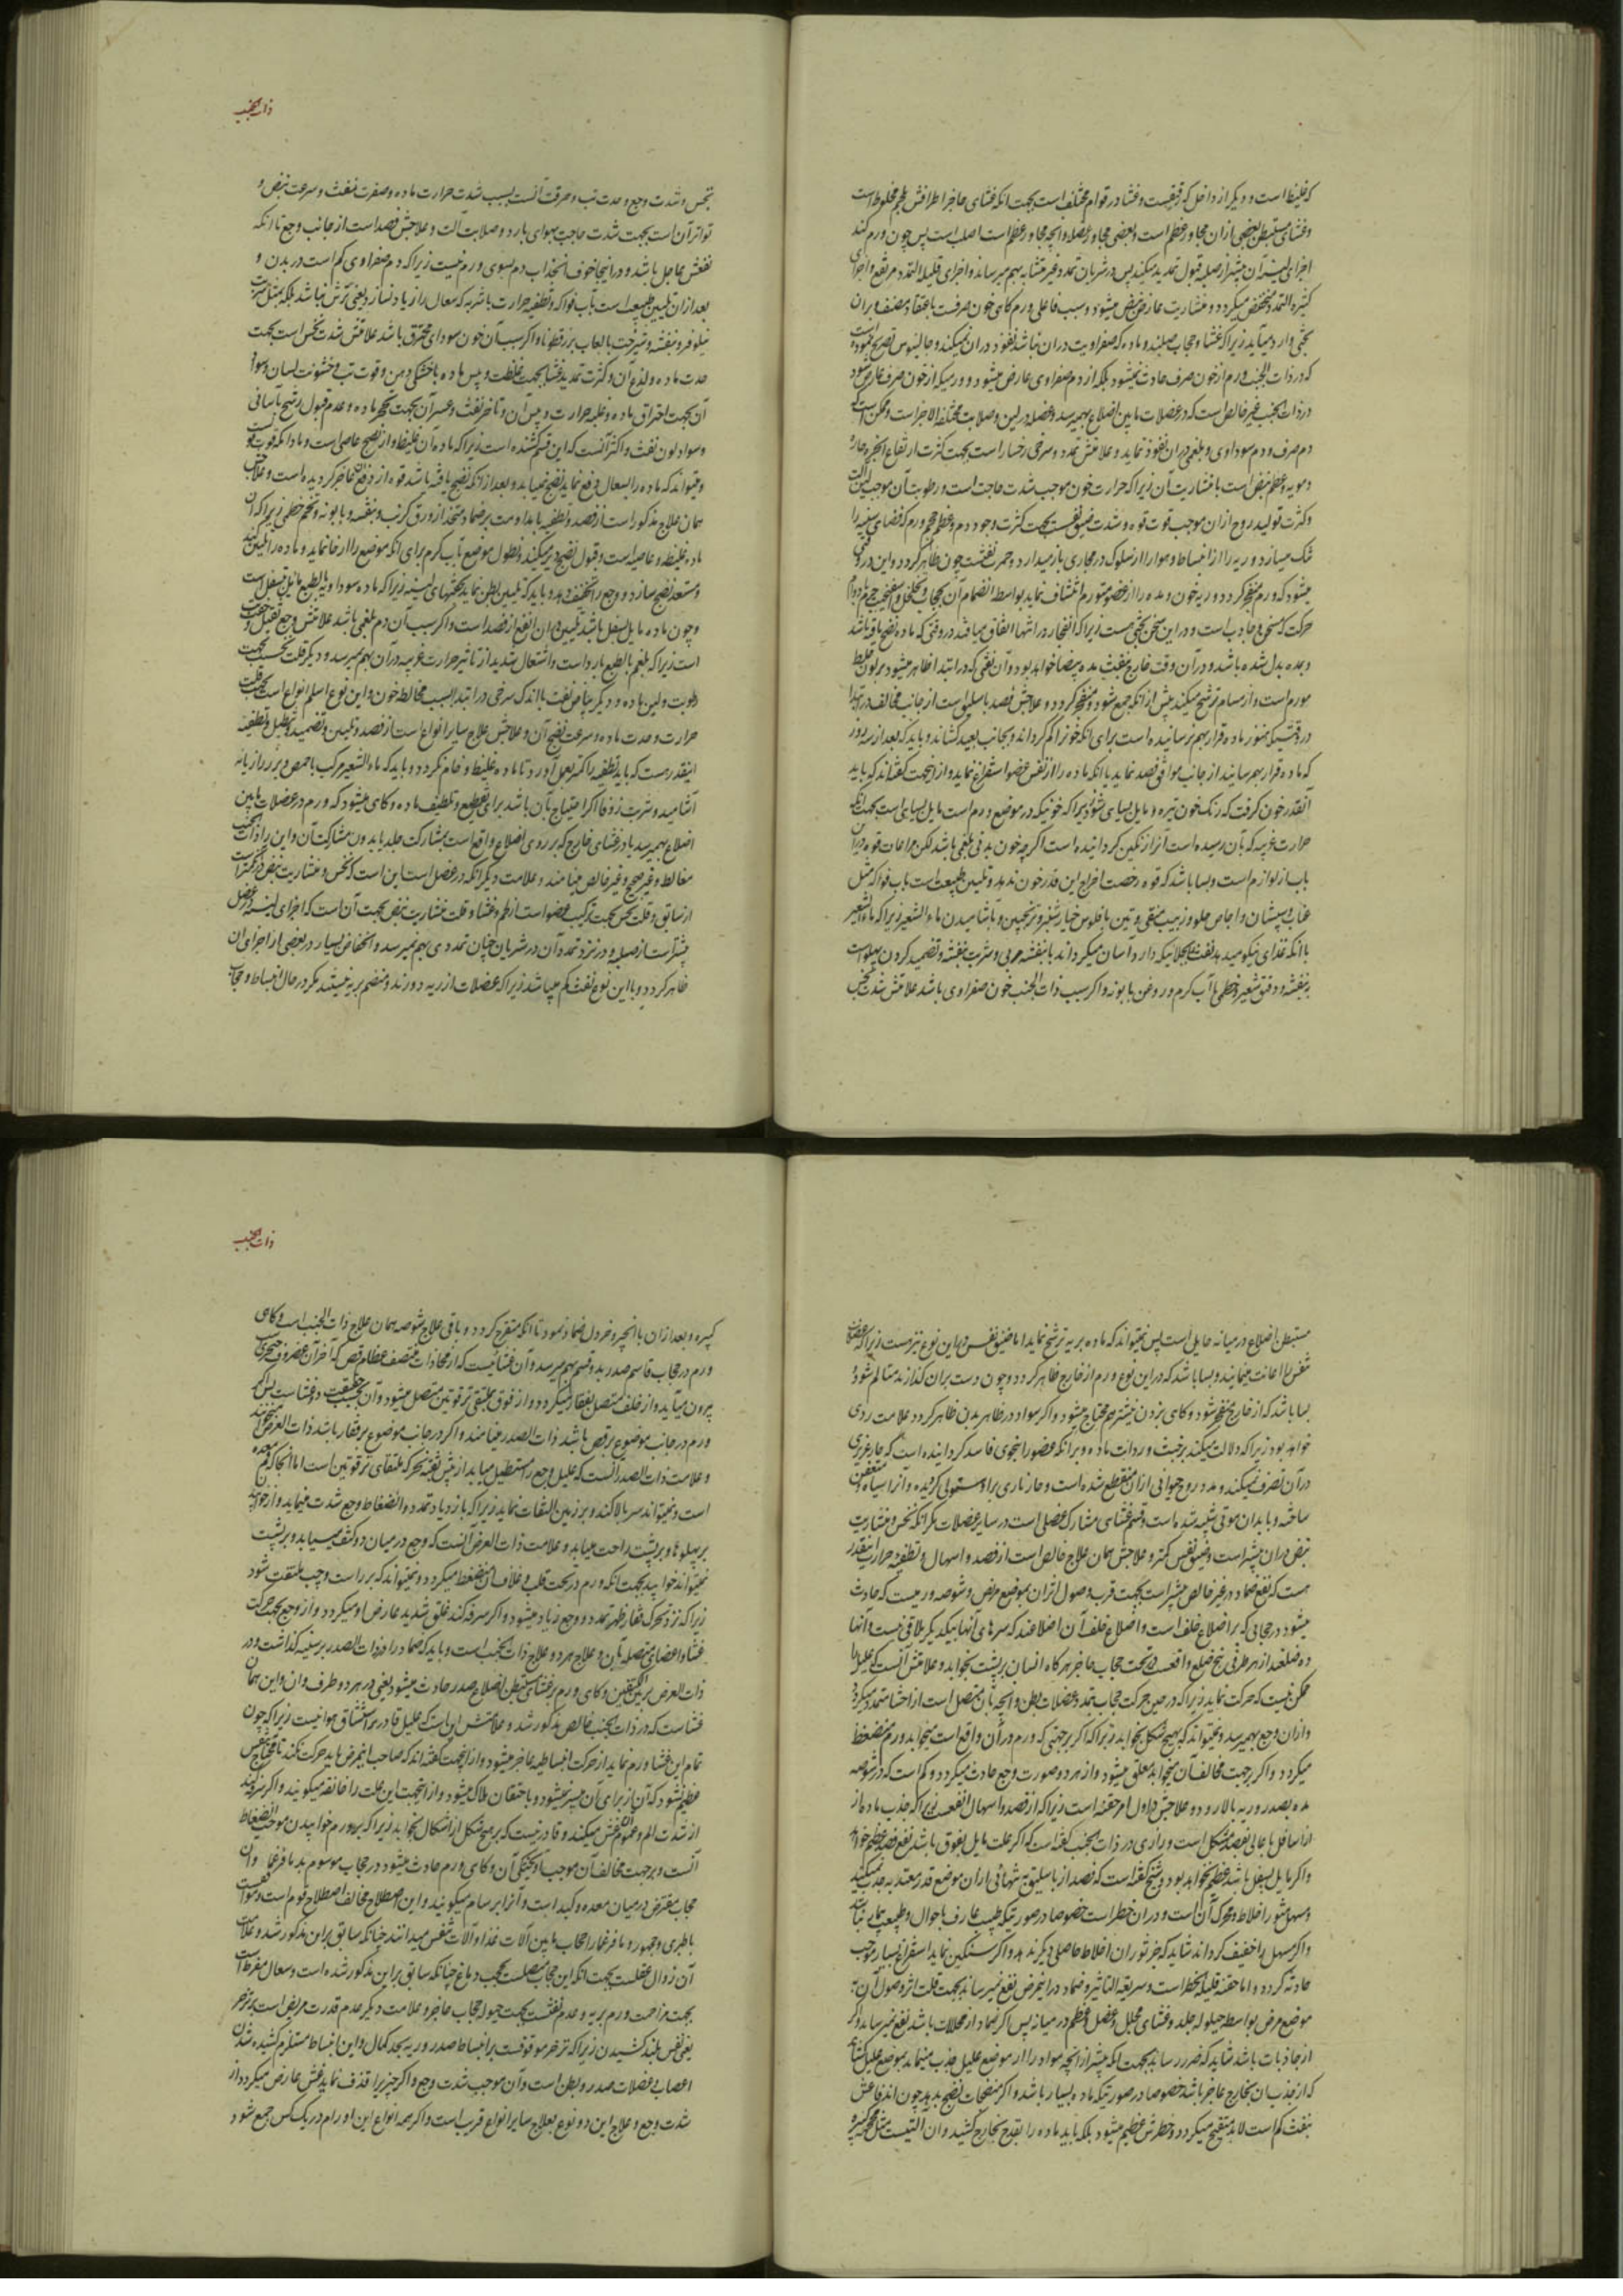 که غلیظ است و دیگر از داخل که رقیقست و غشا در قوام مختلف است بجهت انکه غشای حاجز اطرافش بلحم مخلوط است
و غشای مستبطن بعضی ازان مجاور عظم است و بعضی مجاور عضله و انچه مجاور عظم است اصلب است پس چون ورم کند
اجزای لین آن بیشتر از صلبه قبول تمدید میکند پس در شریان تمدد غیر متشابه بهم میرساند و اجزای قلیل التمدد مرتفع و اجزای
کثیره التمدد منخفض میکردد و منشاریت عارض نبض میشود و سبب فاعلی ورم کاهی خون صرفست باعتقاد مصنف و بران
بحثی وارد میآید زیرا که غشا و حجاب صلبند و ماده که صفراویت دران نباشد نفوذ دران نمیکند و جالینوس تصریح نموده است
که در ذات الجنب ورم از خون صرف حادث نمیشود بلکه از دم صفراوی عارض میشود و ورمیکه از خون صرف عارض شود
در ذات الجنب غیر خالص است که در عضلات مابین اضلاع بهمیرسد و عضله در لین و صلابت مختلفة الاجزا است و ممکن است که
دم صرف و دم سوداوی و بلغمی دران نفوذ نماید و علامتش تمدد و سرخی رخسار است بجهت کثرت ارتفاع ابخره حاره
دمویه و عظم نبض است با منشاریت آن زیرا که حرارت خون موجب شدت حاجت است و رطوبت آن موجب لین آلت
و کثرت تولید روح ازان موجب قوت قوه و شدت ضیق نفس بجهت کثرت وجود دم و عظم حجم ورم که فضای سینه را
تنک میسازد و ریه را از انبساط و هوا را از سلوک در مجاری باز میدارد و حمرت نفثست چون ظاهر کردد و این در وقتی
میشود که ورم منفجر کردد و ریه خون و مده را از عضو متورم انتشاف نماید بواسطه انضمام آن بحجاب و تخلخل و سخونت جرم و دوام
حرکت که سخن و جاذب است و در این سخن بحثی هست زیرا که انفجار در انتها اتفاق میافتد در وقتی که ماده نضج یافته باشد
و بمده بدل شده باشد و در آن وقت خارج بنفث مده بیضا خواهد بود و آن نفثی که در ابتدا ظاهر میشود بر لون خلط
مورم است و از مسام ترشح میکند پیش از انکه جمع شود و منفجر کردد و علاجش فصد باسلیق است از جانب مخالف در ابتدا
در وقتیکه هنوز ماده قرار بهم نرسانیده است برای انکه خونرا کم کرداند و بجانب بعید کشاند و باید که بعد از سه روز
که ماده قرار بهم رسانید از جانب موافق فصد نماید یا انکه ماده را از نفس عضو استفراغ نماید و از اینجهت کفته اند که باید
آنقدر خون کرفت که رنک خون تیره و مایل بسیاهی شود زیرا که خونیکه در موضع ورم است مایل بسیاهی است بجهت آنکه
حرارت غریبه که بآن رسیده است آنرا رنکین کردانیده است اکرچه خون بدنی بلغمی باشد لکن مراعات قوه درین
باب از لوازم است و بسا باشد که قوه رخصت اخراج این قدر خون ندهد و تلیین طبیعت است بآب فواکه مثل
عناب و سپستان و اجاص حلو و زبیب منقی و تین با فلوس خیار شنبر و ترنجبین و باشامیدن ماء الشعیر زیرا که ماء الشعیر
با انکه غذای نیکو میدهد نفث را بجلائیکه دارد آسان میکرداند با بنفشه مربی و شربت بنفشه و تضمید کردن پهلو است
به بنفشه و دقیق شعیر و خطمی با آب کرم و روغن بابونه و اکر سبب ذات الجنب خون صفراوی باشد علامتش شدت نخس
ذات الجنب
نخس و شدت وجع و حدت تب و حرقت آنست بسبب شدت حرارت ماده و صفرت نفث و سرعت نبض و
تواتر آن است بجهت شدت حاجت بهوای بارد و صلابت آلت و علاجش فصد است از جانب وجع تا انکه
نفعش عاجل باشد و در اینجا خوف انجذاب دم بسوی ورم نیست زیرا که دم صفراوی کم است در بدن و
بعد ازان تلیین طبیعت است بآب فواکه و تطفیه حرارت باشربه که سعال را زیاد نسازد یعنی ترش نباشد بلکه بمثل شربت
نیلوفر و بنفشه و شیرخشت با لعاب بزرقطونا و اکر سبب آن خون سودای محترق باشد علامتش شدت نخس است بجهت
حدت ماده و لذع آن و کثرت تمدید غشا بجهت غلظت و یبس ماده با خشکی دهن و قوت تب و خشونت لسان و سواد
آن بجهت احتراق ماده و غلبه حرارت و یبس آن و تأخر نفث و عسر آن بجهت تحجر ماده و عدم قبول رشح بآسانی
و سواد لون نفث و اکثر آنست که این قسم کشنده است زیرا که ماده آن غلیظ و از نضج عاصی است و مادامکه قوت قوی
و میتواند که ماده را بسعال دفع نماید نضج نمییابد و بعد از انکه نضج یافته باشد قوه از دفع آن عاجز کردیده است و علاج
همان علاج مذکور است از فصد و تطفیه با مداومت بر ضماد متخذ از ورق کرنب و بنفشه و بابونه و تخم خطمی زیرا که ان
ماده غلیظ و عاصیه است و قبول نضج دیر میکند و نطول موضع بآب کرم برای انکه موضع را ارخا نماید و ماده را تلیین نماید
و مستعد نضج سازد و وجع را تخفیف دهد و باید که تلیین بطن نماید بحقنهای لینه زیرا که ماده سوداویه بالطبع مایل بسفل است
و چون ماده مایل بسفل باشد تلیین دران انفع از فصد است و اکر سبب آن دم بلغمی باشد علامتش وجع ثقیل و خفت
است زیرا که بلغم بالطبع بارد است و اشتعال شدید از تاثیر حرارت غریبه در آن بهم نمیرسد و دیکر قلت نخس بجهت
رطوبت و لین ماده و دیکر بیاض نفث با اندک سرخی در ابتدا بسبب مخالطه خون و این نوع اسلم انواع است بجهت قلت
حرارت و حدت ماده و سرعت نضج آن و علاجش علاج سایر انواع است از فصد و تلیین و تضمید و تنطیل و تطفیه
اینقدر هست که باید تطفیه را کمتر بعمل آورد تا ماده غلیظ و خام نکردد و باید که ماء الشعیر مرکب با حمص و بزر رازیانه
آشامید و شربت زوفا اکر احتیاج بآن باشد برای تقطیع و تلطیف ماده و کاهی میشود که ورم در عضلات مابین
اضلاع بهمیرسد یا در غشای خارج که بر روی اضلاع واقع است بمشارکت جلد یا بدون مشارکت آن و این را ذات الجنب
مغالط و غیر صحیح و غیر خالص مینامند و علامت دیکر آنکه در عضل است این است که نخس و منشاریت نبض درین کمتر است
از سابق و قلت نخس بجهت ترکیب عضو است از لحم و غشا و قلت منشاریت نبض بجهت آن است که اجزای لینه در عضل
بیشتر است از صلبه و در نزد تمدد آن در شریان چنان تمددی بهم نمیرسد و انخفاض بسیار در بعضی از اجزای ان
ظاهر کردد و با این نوع نفث کم میباشد زیرا که عضلات از ریه دورند و منضم بریه نیستند مکر در حال انبساط و حجاب
مستبطن اضلاع در میانه حایل است پس نمیتواند که ماده بریه ترشح نماید اما ضیق نفس در این نوع نیز هست زیرا که عضلات
تنفس را اعانت مینمایند و بسا باشد که در این نوع ورم از خارج ظاهر کردد و چون دست بران کذارند متالم شود و
بسا باشد که از خارج منفجر شود و کاهی بزدن نیشتر هم محتاج میشود و اکر سواد در ظاهر بدن ظاهر کردد علامت ردی
خواهد بود زیرا که دلالت میکند بر خبث و رداءت ماده و برانکه عضو را بنحوی فاسد کردانیده است که حار غریزی
درآن تصرف نمیکند و مدد روح حیوانی ازان منقطع شده است و حار ناری براو مستولی کردیده و آنرا سیاه و متعفن
ساخته و بابدان موتی شبیه شده است و قسم غشای مشارک عضلی است در سایر عضلات مکر انکه نخس و منشاریت
نبض دران بیشتر است و ضیق نفس کمتر و علاجش همان علاج خالص است از فصد و اسهال و تطفیه حرارت اینقدر
هست که نفع ضماد در غیر خالص بیشتر است بجهت قرب وصول اثران بموضع مرض و شوصه ورمیست که حادث
میشود در حجابی که بر اضلاع خلف است و اضلاع خلف آن اضلاعند که سرهای آنها بیکدیکر ملاقی نیست و آنها
ده ضلعند از هر طرفی پنج ضلع واقعست در تحت حجاب حاجز هر کاه انسان بر پشت بخوابد و علامتش آنست که علیل را
ممکن نیست که حرکت نماید زیرا که در حین حرکت حجاب تمدد و عضلات بطن و انچه بآن متصل است از احشا متمدد میکردد
و ازان وجع بهمیرسد و نمیتواند که بهیچ شکل بخوابد زیرا که اکر بر جهتی که ورم در آن واقع است میخوابد ورم منضغط
میکردد و اکر بر جهت مخالف آن میخوابد معلق میشود و از هر دو صورت وجع حادث میکردد و کم است که در شوصه
مده بصدر و ریه بالا رود و علاجش در اول امر حقنه است زیرا که از فصد و اسهال انفعست زیرا که جذب ماده از
از اسافل باعالی بفصد مشکل است و رازی در ذات الجنب کفته است که اکر علت مایل بفوق باشد نفع فصد عظیم خواهد
و اکر مایل بسفل باشد عظیم نخواهد بود و شیخ کفته است که فصد از باسلیق به تنهائی ازان موضع قدر معتد به جذب نمیکند
و مسهل مثور اخلاط و محرک آن است و دران خطر است خصوصا در صورتیکه طبیب عارف باحوال و طبیعت بیمار نباشد
و اکر مسهل را خفیف کرداند شاید که خبر ثوران اخلاط حاصلی دیکر ندهد و اکر سنکین نماید استفراغ بسیار موجب
حادثه کردد و اما حقنه قلیل الخطر است و سریعة التاثیر و ضماد در اینمرض نفع نمیرساند بجهت قلت اثر وصول آن به
موضع مرض بواسطه حیلوله جلد و غشای مجلل و عضل و عظم در میانه پس اکر ضماد از محللات باشد نفع نمیرساند و اکر
از جاذبات باشد شاید که ضرر رساند بجهت انکه بیشتر از انچه مواد را از موضع علیل جذب مینماید بموضع علیل کشاند
که از جذب ان بخارج عاجز باشد خصوصا در صورتیکه ماده بسیار باشد و اکر منضجات نضج بدهد چون اندفاعش
بنفث کم است لابد متقیح میکردد و خطرش عظیم میشود بلکه باید ماده را بتدریج بخارج کشید و ان آلتیست مثل محجمه کبیره
ذات الجنب
کبیره و بعد ازان با انجره و خردل ضماد نمود تا انکه متقرح کردد و باقی علاج شوصه همان علاج ذات الجنب است و کاهی
ورم در حجاب قاسم صدر بدو قسم بهم میرسد و آن غشائیست که از محاذات منتصف عظام قص که آخر آن غضروف حنجری
بیرون میآید و از خلف متصل بفقار میکردد و از فوق بملتقی ترقوتین متصل میشود و آن بحسب حقیقت دو غشا است پس اکر
ورم در جانب موضوع بر قص باشد ذات الصدر مینامند و اکر در جانب موضوع بر فقار باشد ذات العرض میخوانند
و علامت ذات الصدر آنست که علیل وجع را مستطیل مییابد از پیش ثغره نحر که ملتقای ترقوتین است تا انجا که فم معده
است و نمیتواند سر بالا کند و بر زمین التفات نماید زیرا که بازدیاد تمدد و انضغاط وجع شدت مینماید و از خوابیدن
بر پهلوها و بر پشت راحت مییابد و علامت ذات العرض آنست که وجع در میان دو کتف میباید و بر پشت
نمیتواند خوابید بجهت انکه ورم در تحت قلب و غلاف آن منضغط میکردد و نمیتواند که بر راست و چپ ملتفت شود
زیرا که نزد تحرک فقار ظهر تمدد و وجع زیاد میشود و اکر سرفه کند قلق شدید عارض او میکردد و از وجع بجهت حرکت
غشا و اعضای متصله بآن و علاج هر دو علاج ذات الجنب است و باید که ضماد را در ذات الصدر بر سینه کذاشت و در
ذات العرض بر بین الکتفین و کاهی ورم بر غشای مستبطن اضلاع صدر حادث میشود یعنی در هر دو طرف وان و این همان
غشا است که در ذات الجنب خالص مذکور شد و علامتش این است که علیل قادر بر استنشاق هوا نیست زیرا که چون
تمام این غشا ورم نماید از حرکت انبساطیه عاجز میشود و ازینجهت کفته اند که صاحب اینمرض باید حرکت نکند تا محتاج بنفس
عظیم نشود که آن از برای آن میسر نمیشود و باختناق هلاک میشود و از اینجهت این علت را خانقه میکویند و اکر سرفه کند
از شدت الم و عموم آن غش میکند و قادر نیست که بر هیچ شکل از اشکال بخوابد زیرا که بر هر ورم خوابیدن موجب انضغاط
آنست و بر جهت مخالف آن موجب آویختکی آن و کاهی ورم حادث میشود در حجاب موسوم بدیافرغما و ان
حجاب مقترض در میان معده و کبد است و آنرا برسام میکویند و این اصطلاح مخالف اصطلاح قوم است و موافقت
با طبری و جمهور دیافرغما را حجاب مابین آلات غذا و آلات تنفس میدانند چنانکه سابق براین مذکور شد و علامت
آن زوال عقلست بجهت انکه این حجاب متصلست بحجب دماغ چنانکه سابق براین مذکور شده است و سعال مفرط است
بجهت مزاحمت ورم بریه و عدم نفثست بجهت حیلوله حجاب حاجز و علامت دیکر عدم قدرت مریض است بر تزحر
یعنی نفس بلند کشیدن زیرا که تزحر موقوفست بر انبساط صدر و ریه بحد کمال و این انبساط مستلزم کشیده شدن
اعصاب عضلات صدر و بطن است و آن موجب شدت وجع و اکر چیزیرا قذف نماید غش عارض میکردد از
شدت وجع و علاج این دو نوع بعلاج سایر انواع قریب است و اکر همه انواع این اورام در یک کس جمع شود